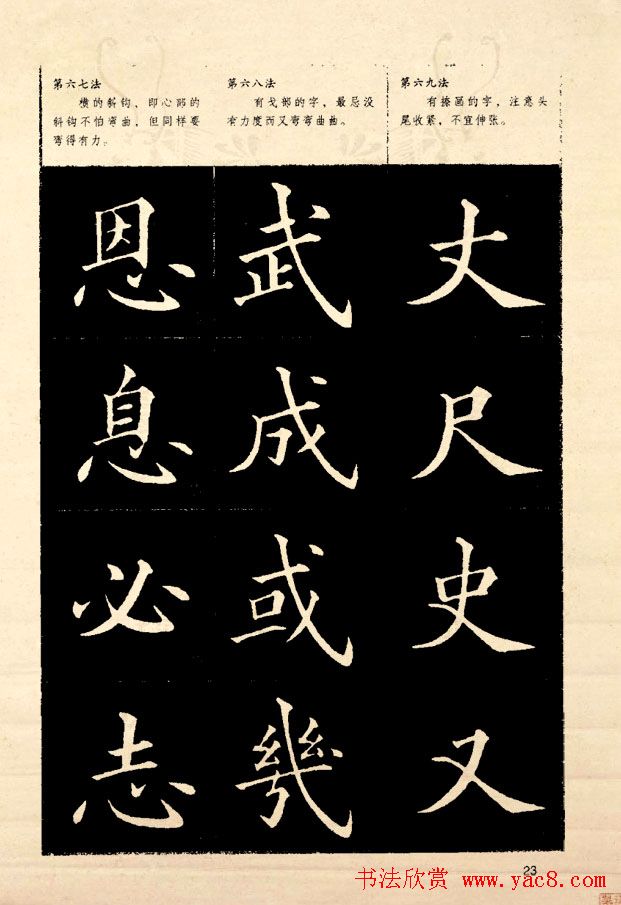 第六七法
横的斜钩、即心部的
斜钩不怕弯曲，但同样要
弯得有力。
第六八法
有戈部的字，最忌没
有力度而又弯弯曲曲。
第六九法
有捺画的字，注意头
尾收紧，不宜伸张。
恩
息
必
志
武
成
或
幾
丈
尺
史
又
23
书法欣赏 www.yac8.com